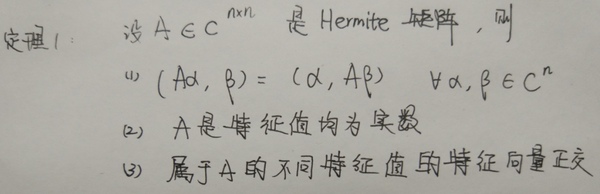 定理1: 设 A ∈ C^{n×n} 是 Hermite 矩阵, 则
(1) (Aα, β) = (α, Aβ) ∀α, β ∈ C^n
(2) A是特征值均为实数
(3) 属于A的不同特征值的特征向量正交